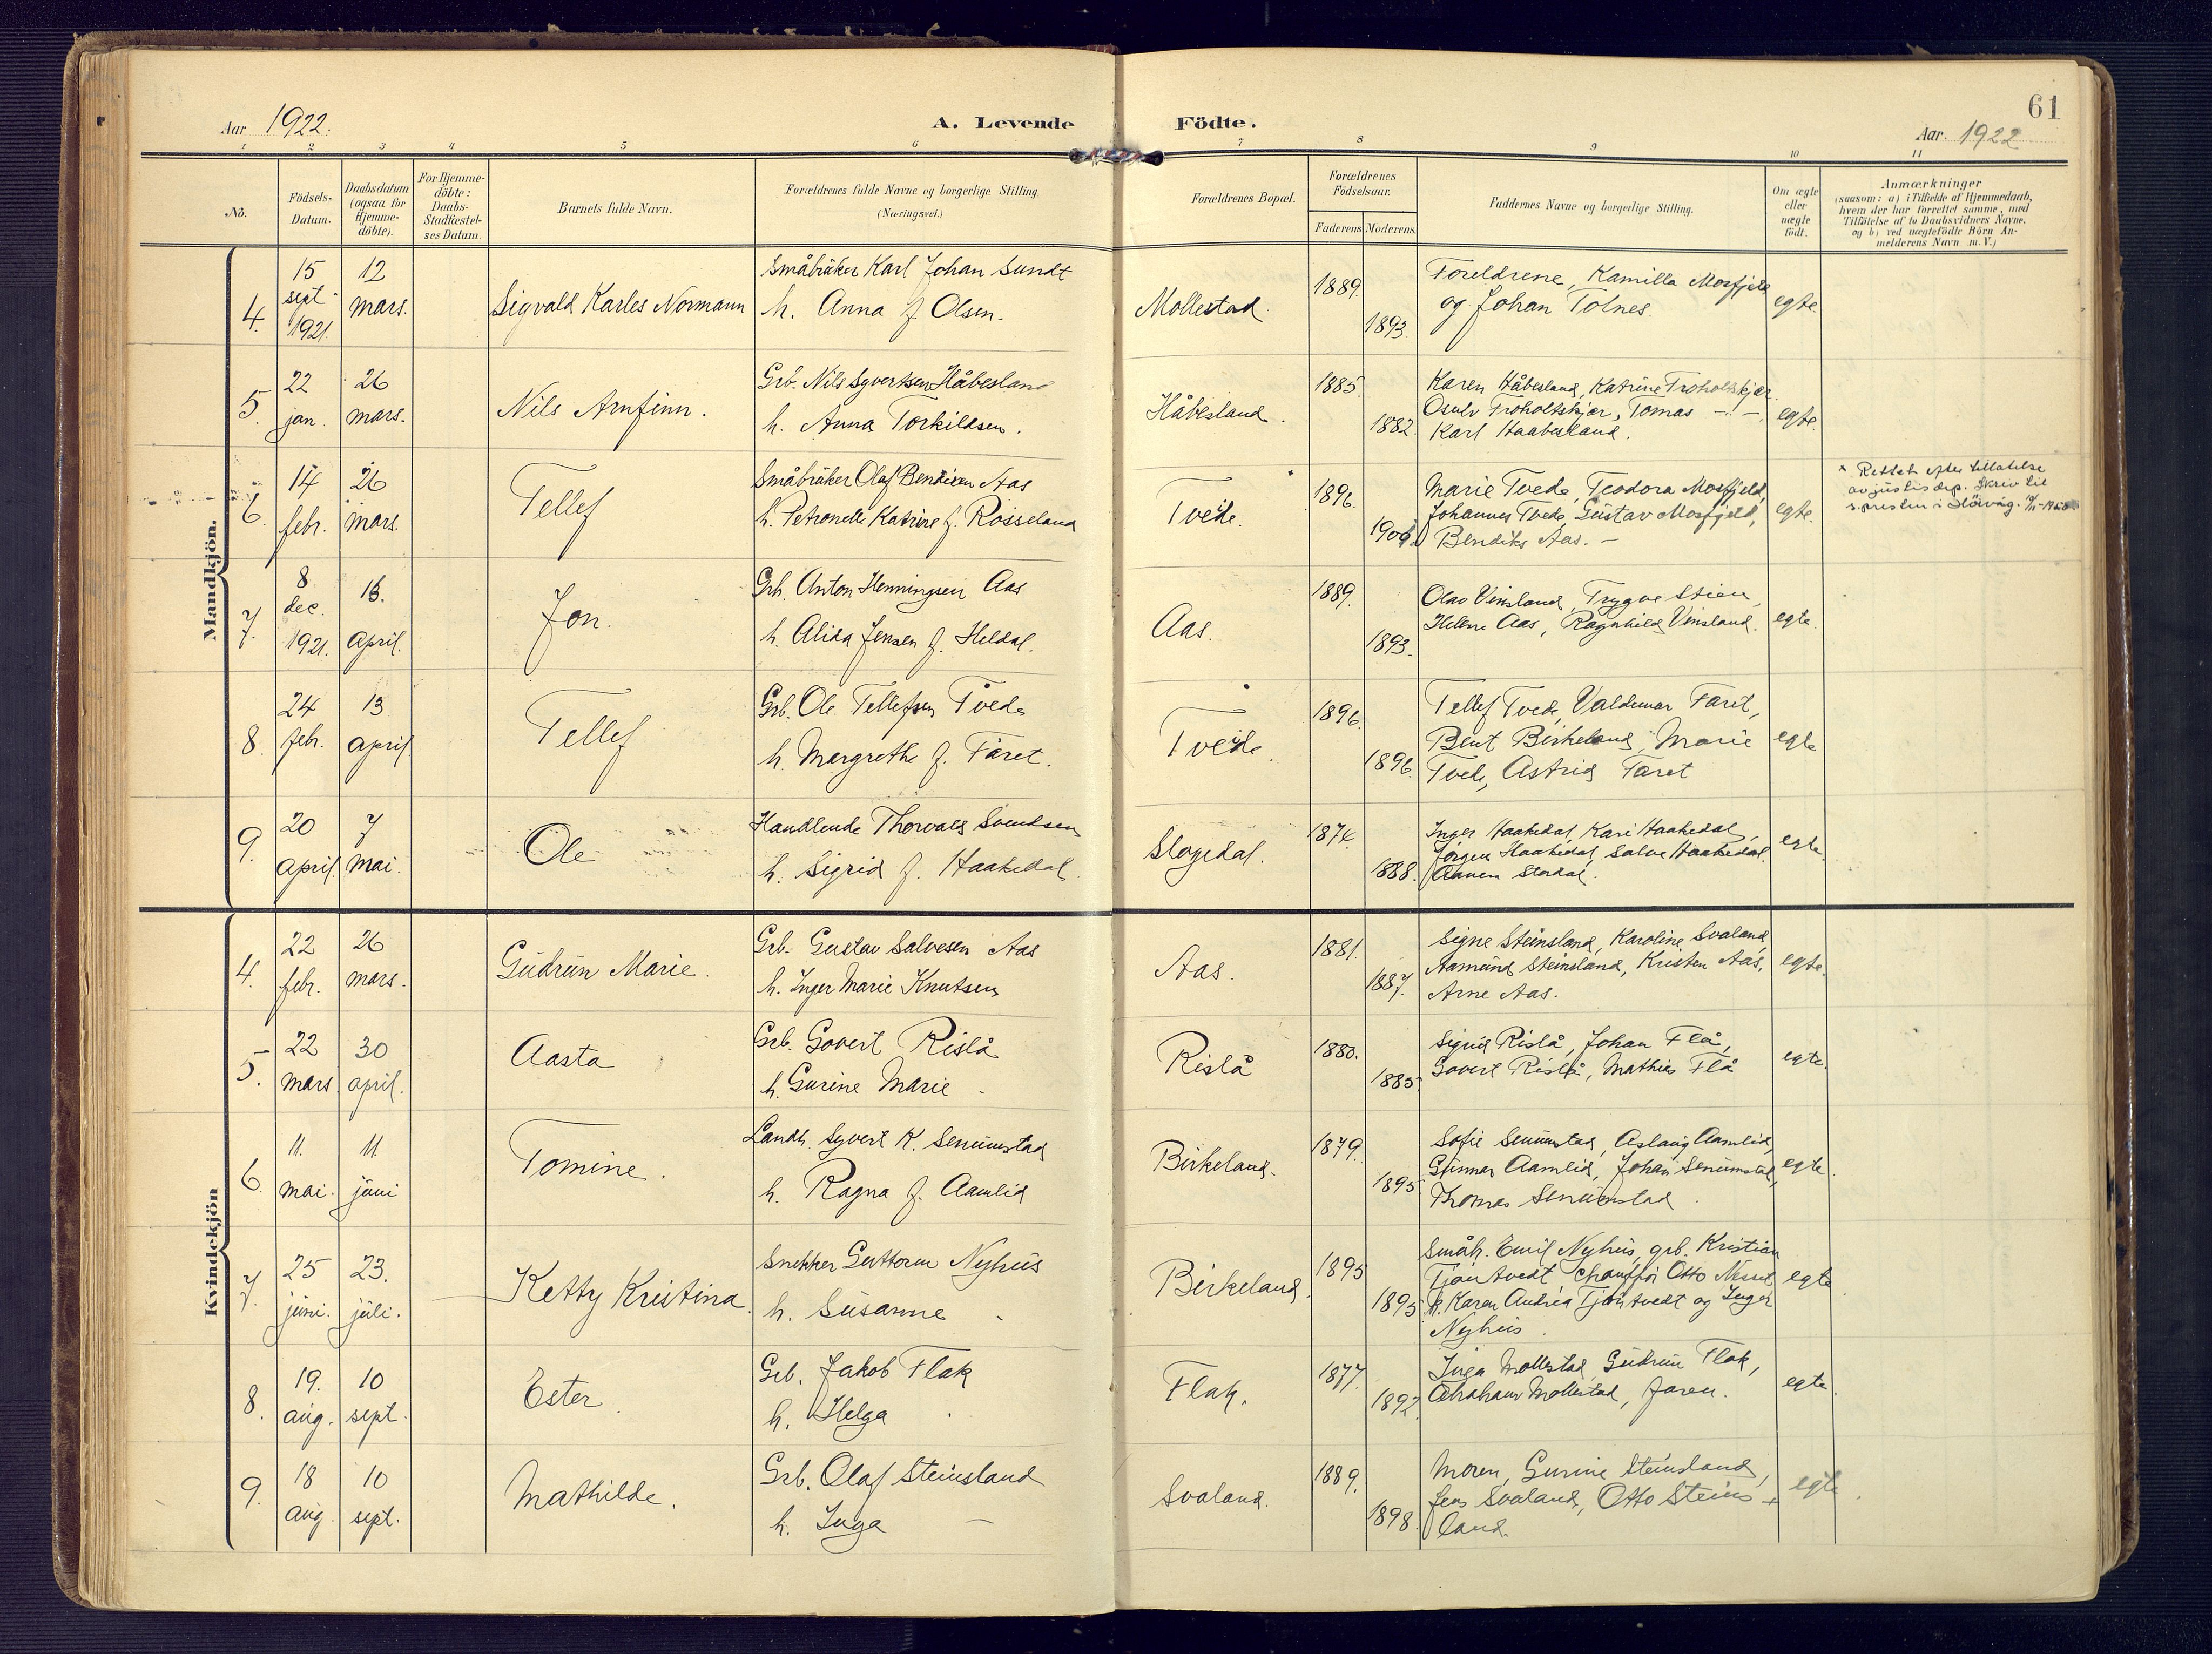 61
Aar 1922.
A. Levende Födte.
Aar. 1922
1 2 3 4 5 6 7 8 9 10 11
No.
Födsels-
Datum.
Daabsdatum
(ogsaa for
Hjemme-
döbte).
For Hjemme-
döbte:
Daabs-
Stadfæstel-
ses Datum.
Barnets fulde Navn.
Forældrenes fulde Navne og borgerlige Stilling
(Næringsvei.)
Forældrenes Bopæl.
Forældrenes
Födselsaar.
Faderens Moderens.
Faddernes Navne og borgerlige Stilling.
Om ægte
eller
uægte
födt.
Anmærkninger
(saasom: a) i Tilfælde af Hjemmedaab,
hvem der har forrettet samme, med
Tilföielse af to Daabsvidners Navne,
og b) ved uægtefödte Börn An-
melderens Navn m. V.)
Mandkjön.
4.
15
sept.
1921.
12
mars.
Sigvald Karles Normann
Småbruker Karl Johan Sundt
h. Anna f. Olsen.
Mollestad.
1889.
1893.
Foreldrene, Kamilla Mosfjeld
og Johan Tolnes.
egte
5.
22
jan.
26
mars.
Nils Arnfinn.
Grb. Nils Syvertsen Håbesland
h. Anna Torkildsen.
Håbesland.
1885.
1882.
Karen Håbesland, Katrine Troholtskjær
Osulv Troholtskjær, Tomas –"–
Karl Haabesland.
egte.
6.
14
febr.
26
mars.
Tellef
Småbruker Olaf Bendixen Aas
h. Petronelle Katrine f. Rosseland
Tveide.
1896.
1901
Marie Tvede, Teodora Mosfjeld,
Johannes Tvede, Gustav Mosfjeld,
Bendiks Aas. –
egte.
x Rettet efter tillatelse
av justisdep. Skriv til
s.presten i
7.
8
dec.
1921.
16.
April.
Jon.
Grb. Anton Henningsen Aas
h. Alida Jensen f. Heldal.
Aas.
1889.
1893.
Olav Vinsland, Trygve Stien,
Helene Aas, Ragnhild Vinsland.
egte.
8.
24
febr.
13
april.
Tellef
Grb. Ole Tellefsen Tvede
h. Margrethe f. Faret.
Tveide.
1896.
1896.
Tellef Tvede, Valdemar Faret,
Bent Birkeland, Marie
Tvede, Astrid Faret
egte
9.
20
april.
7
mai.
Ole
Handlende Thorvald Svendsen
h. Sigrid f. Haakedal.
Slogedal.
1874.
1888.
Inger Haakedal, Kari Haakedal,
Jørgen Haakedal, Salve Haakedal.
Aanen
egte.
Kvindekjön
4.
22
febr.
26
mars.
Gudrun Marie.
Grb. Gustav Salvesen Aas
h. Inger Marie Knutsen
Aas.
1881.
1887.
Signe Steinsland, Karoline Svaland,
Aamund Steinsland, Kristen Aas,
Arne Aas.
egte.
5.
22
mars.
30
april.
Aasta
Grb. Govert Rislå
h. Gurine Marie -
Rislå
1880.
1885.
Sigrid Rislå, Johan Flå,
Govert Rislå, Mathias Flå
egte.
6.
11.
mai.
11
juni
Tomine.
Landh. Syvert K. Senumstad
h. Ragna f. Aamlid
Birkeland.
1879.
1895
Sofie Senumstad, Aslaug Aamlid,
Gunnar Aamlid, Johan Senumstad,
Thomas Senumstad.
egte.
7.
25
juni.
23.
juli.
Ketty Kristina.
Snekker Guttorm Nyhus
h. Susanne -
Birkeland.
1895
1895
Småb. Emil Nyhus, grb. Kristian
Tjøntvedt chauffør Otto Nesset
h. Karen Andrea Tjøntvedt og Inger
Nyhus.
egte
8.
19.
aug.
10
sept.
Ester.
Grb. Jakob Flak
h. Helga -
Flak.
1877.
1892.
Inga Mollestad, Gudrun Flak,
Abraham Mollestad, faren.
egte.
9.
18
aug.
10
sept.
Mathilde.
Grb. Olaf Steinsland
h. Inga –
Svaland.
1889.
1898.
Moren, Gurine Steinsland,
Jens Svaland, Otto Steins-
land.
egte.